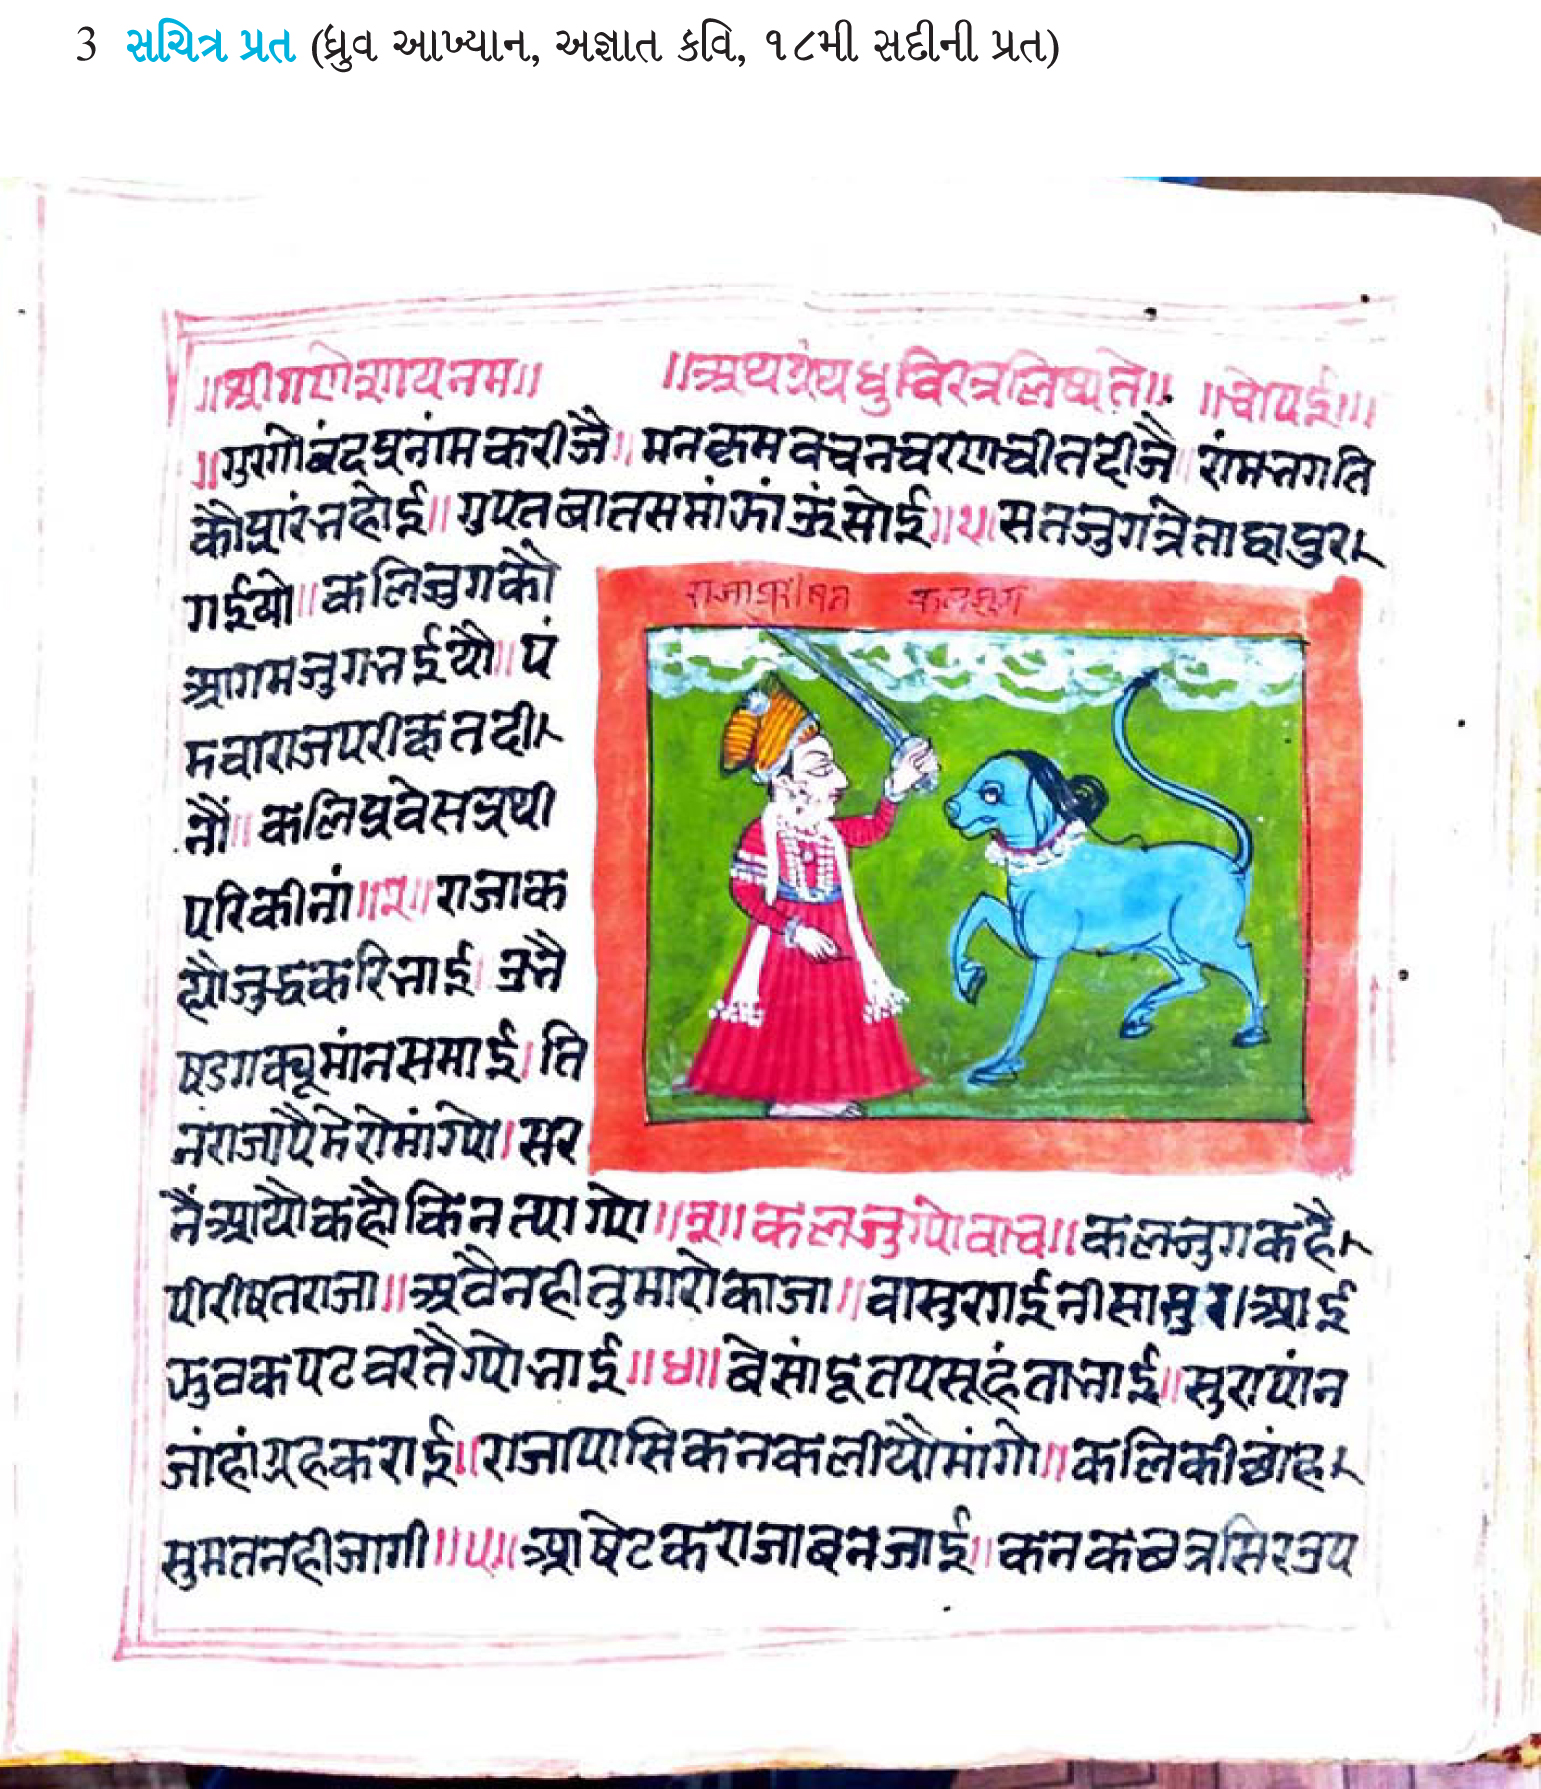 3 સચિત્ર પ્રત (ધ્રુવ આખ્યાન, અજ્ઞાત કવિ, ૧૮મી સદીની પ્રત)
॥श्रीगणेशायनम॥ ॥अथग्रंथध्रुचिरत्रलिष्यते॥ ॥चोपई॥
॥गुरगोबंदप्रनांमकरीजै॥मनक्रमवचनचरणचीतदीजै॥रांमभगति
कौप्रारंभहोई॥गुपतबातसमांऊंसोई॥१॥सतजुगत्रेताद्वापुर।
गईयो॥कलिजुगकौ
आगमजुगभईयौ॥पं
मवाराजपरीक्षतदी।
नौं॥कलिप्रवेसप्रथी
परिकीनां॥२॥राजाक
ह्यौजुद्धकरिभाई।उभै
षडगक्यूमांनसमाई।ति
नंराजापैमेरोमांग्यो।सर
राजाप्ररीषत कलयुग
नैंआयौकहौकिनत्याग्यो॥३॥कलजुग्योवाच॥कलजुगकहै।
पीरीषतराजा॥अवैनहीतुमारोकाजा॥वासुरगईनीसासुर।आई
ऊवकपटवरतैग्योभाई॥४॥बेसांदूतपसूहंताभाई॥सुरापांन
जांहांग्रहकराई॥राजापासिकनकलीयौमांगी॥कलिकीछांह।
सुमतनहीजागी॥५॥आषेटकराजाबनजाई॥कनकछत्रसिरउप